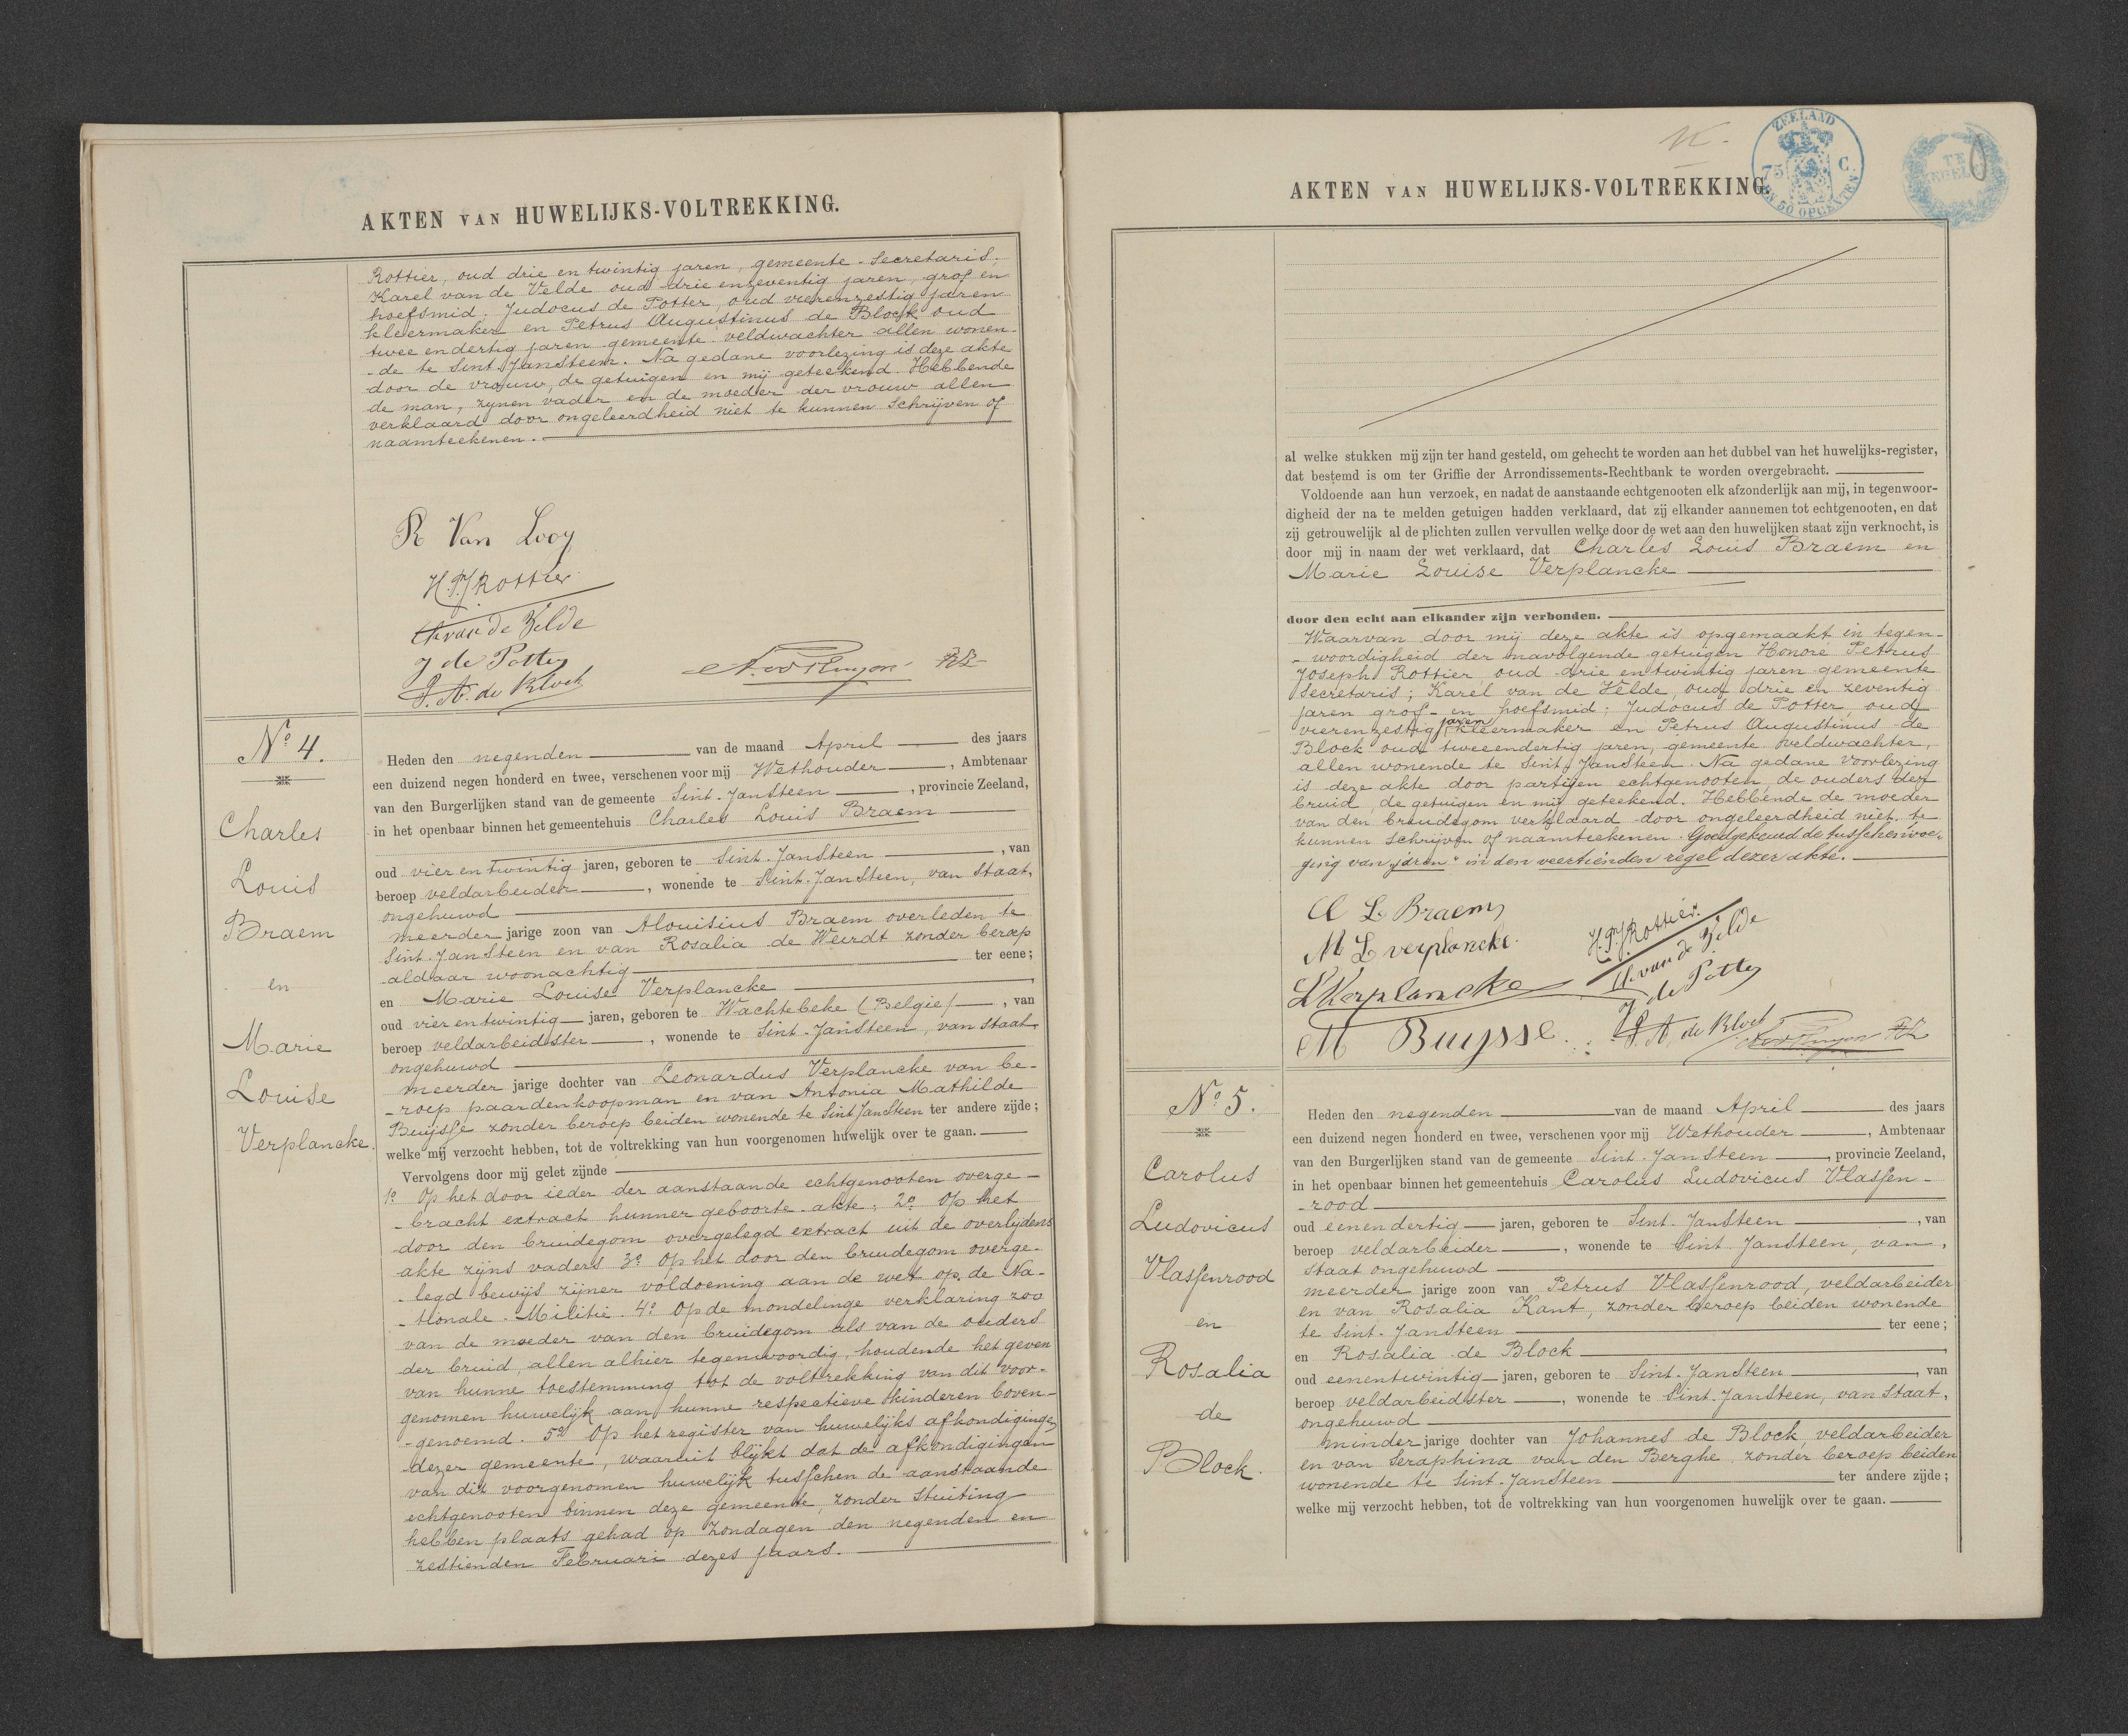 AKTEN VAN HUWELIJKS-VOLTREKKING.
Rottier, oud drie en twintig jaren, gemeente-Secretaris;
Karel van de Velde oud drie enzeventig jaren, grof en
hoefsmid; Judocus de Potter, oud vierenzestig jaren
kleermaker en Petrus Augustinus de Block oud
twee endertig jaren gemeente veldwachter allen wonen-
-de te Sint Jansteen. Na gedane voorlezing is deze akte
door de vrouw, de getuigen en mij geteekend. Hebbende
de man, zynen vader en de moeder der vrouw allen
verklaard door ongeleerdheid niet te kunnen schrijven of
naamteekenen.
R Van Looy
H.P.J Rottier
Ch van de Velde
J de Potter
P. A. de Block
No 4.
Charles
Louis
Braem
en
Marie
Louise
Verplancke.
Heden den negenden van de maand April des jaars
een duizend negen honderd en twee, verschenen voor mij Wethouder, Ambtenaar
van den Burgerlijken stand van de gemeente Sint-Jansteen, provincie Zeeland,
in het openbaar binnen het gemeentehuis Charles Louis Braem
oud vier en twintig jaren, geboren te Sint-Jansteen, van
beroep veldarbeider, wonende te Sint-Jansteen, van Staat,
ongehuwd
meerder jarige zoon van Alouisius Braem overleden te
Sint-Jansteen en van Rosalia de Weirdt zonder beroep
aldaar woonachtig ter eene;
en Marie Louise Verplancke
oud vier en twintig jaren, geboren te Wachtebeke (Belgie), van
beroep veldarbeidster, wonende te Sint-Jansteen, van staat
ongehuwd
meerder jarige dochter van Leonardus Verplancke van be-
-roep paardenkoopman en van Antonia Mathilde
Buijsse zonder beroep beiden wonende te Sint Jansteen ter andere zijde;
welke mij verzocht hebben, tot de voltrekking van hun voorgenomen huwelijk over te gaan.
Vervolgens door mij gelet zijnde
1o Op het door ieder der aanstaande echtgenooten overge-
-bracht extract hunner geboorte-akte; 2o Op het
door den bruidegom overgelegd extract uit de overlijdens
akte zijns vaders 3o Op het door den bruidegom overge-
-legd bewijs zijner voldoening aan de wet op de Na-
-tionale-Militie. 4o Op de mondelinge verklaring zoo
van de moeder van den bruidegom als van de ouders
der bruid, allen alhier tegenwoordig, houdende het geven
van hunne toestemming tot de voltrekking van dit voor-
genomen huwelijk aan hunne respectieve kinderen boven-
-genoemd. 5o Op het register van huwelijks afkondigingen
dezer gemeente, waaruit blijkt dat de afkondigingen
van dit voorgenomen huwelijk tusschen de aanstaande
echtgenooten binnen deze gemeente, zonder stuiting
hebben plaats gehad op Zondagen den negenden en
zestienden Februari dezes jaars.
AKTEN VAN HUWELIJKS-VOLTREKKING.
ZEELAND
75 C
EN 50 OPCENTEN
al welke stukken mij zijn ter hand gesteld, om gehecht te worden aan het dubbel van het huwelijks-register,
dat bestemd is om ter Griffie der Arrondissements-Rechtbank te worden overgebracht.
Voldoende aan hun verzoek, en nadat de aanstaande echtgenooten elk afzonderlijk aan mij, in tegenwoor-
digheid der na te melden getuigen hadden verklaard, dat zij elkander aannemen tot echtgenooten, en dat
zij getrouwelijk al de plichten zullen vervullen welke door de wet aan den huwelijken staat zijn verknocht, is
door mij in naam der wet verklaard, dat Charles Louis Braem en
Marie Louise Verplancke
door den echt aan elkander zijn verbonden.
Waarvan door mij deze akte is opgemaakt in tegen-
-woordigheid der navolgende getuigen Honoré Petrus
Joseph Rottier oud drie en twintig jaren gemeente
Secretaris; Karel van de Velde, oud drie en zeventig
jaren grof- en hoefsmid; Judocus de Potter, oud
vieren zestig jaren kleermaker en Petrus Augustinus de
Block oud tweeendertig jaren, gemeente veldwachter,
allen wonende te Sint Jansteen. Na gedane voorlezing
is deze akte door partijen echtgenooten, de ouders der
bruid, de getuigen en mij geteekend. Hebbende de moeder
van den bruidegom verklaard door ongeleerdheid niet te
kunnen schrijven of naamteekenen. Goedgekeurd de tusschenvoe-
ging van "jaren" in den veertienden regel dezer akte.
C L Braem
M L verplancke.
L Verplancke
M Buysse
H.P.J Rottier
Ch van de Velde
J de Potter
P. A. de Block
No 5.
Carolus
Ludovicus
Vlassenrood
en
Rosalia
de
Block.
Heden den negenden van de maand April des jaars
een duizend negen honderd en twee, verschenen voor mij Wethouder, Ambtenaar
van den Burgerlijken stand van de gemeente Sint-Jansteen, provincie Zeeland,
in het openbaar binnen het gemeentehuis Carolus Ludovicus Vlassen-
-rood
oud eenendertig jaren, geboren te Sint-Jansteen, van
beroep veldarbeider, wonende te Sint Jansteen, van,
staat ongehuwd
meerder jarige zoon van Petrus Vlassenrood, veldarbeider
en van Rosalia Kant, zonder beroep beiden wonende
te Sint-Jansteen ter eene;
en Rosalia de Block
oud eenentwintig jaren, geboren te Sint-Jansteen, van
beroep veldarbeidster, wonende te Sint-Jansteen, van Staat,
ongehuwd
minder jarige dochter van Johannes de Block, veldarbeider
en van Seraphina van den Berghe zonder beroep beiden
wonende te Sint-Jansteen ter andere zijde;
welke mij verzocht hebben, tot de voltrekking van hun voorgenomen huwelijk over te gaan.